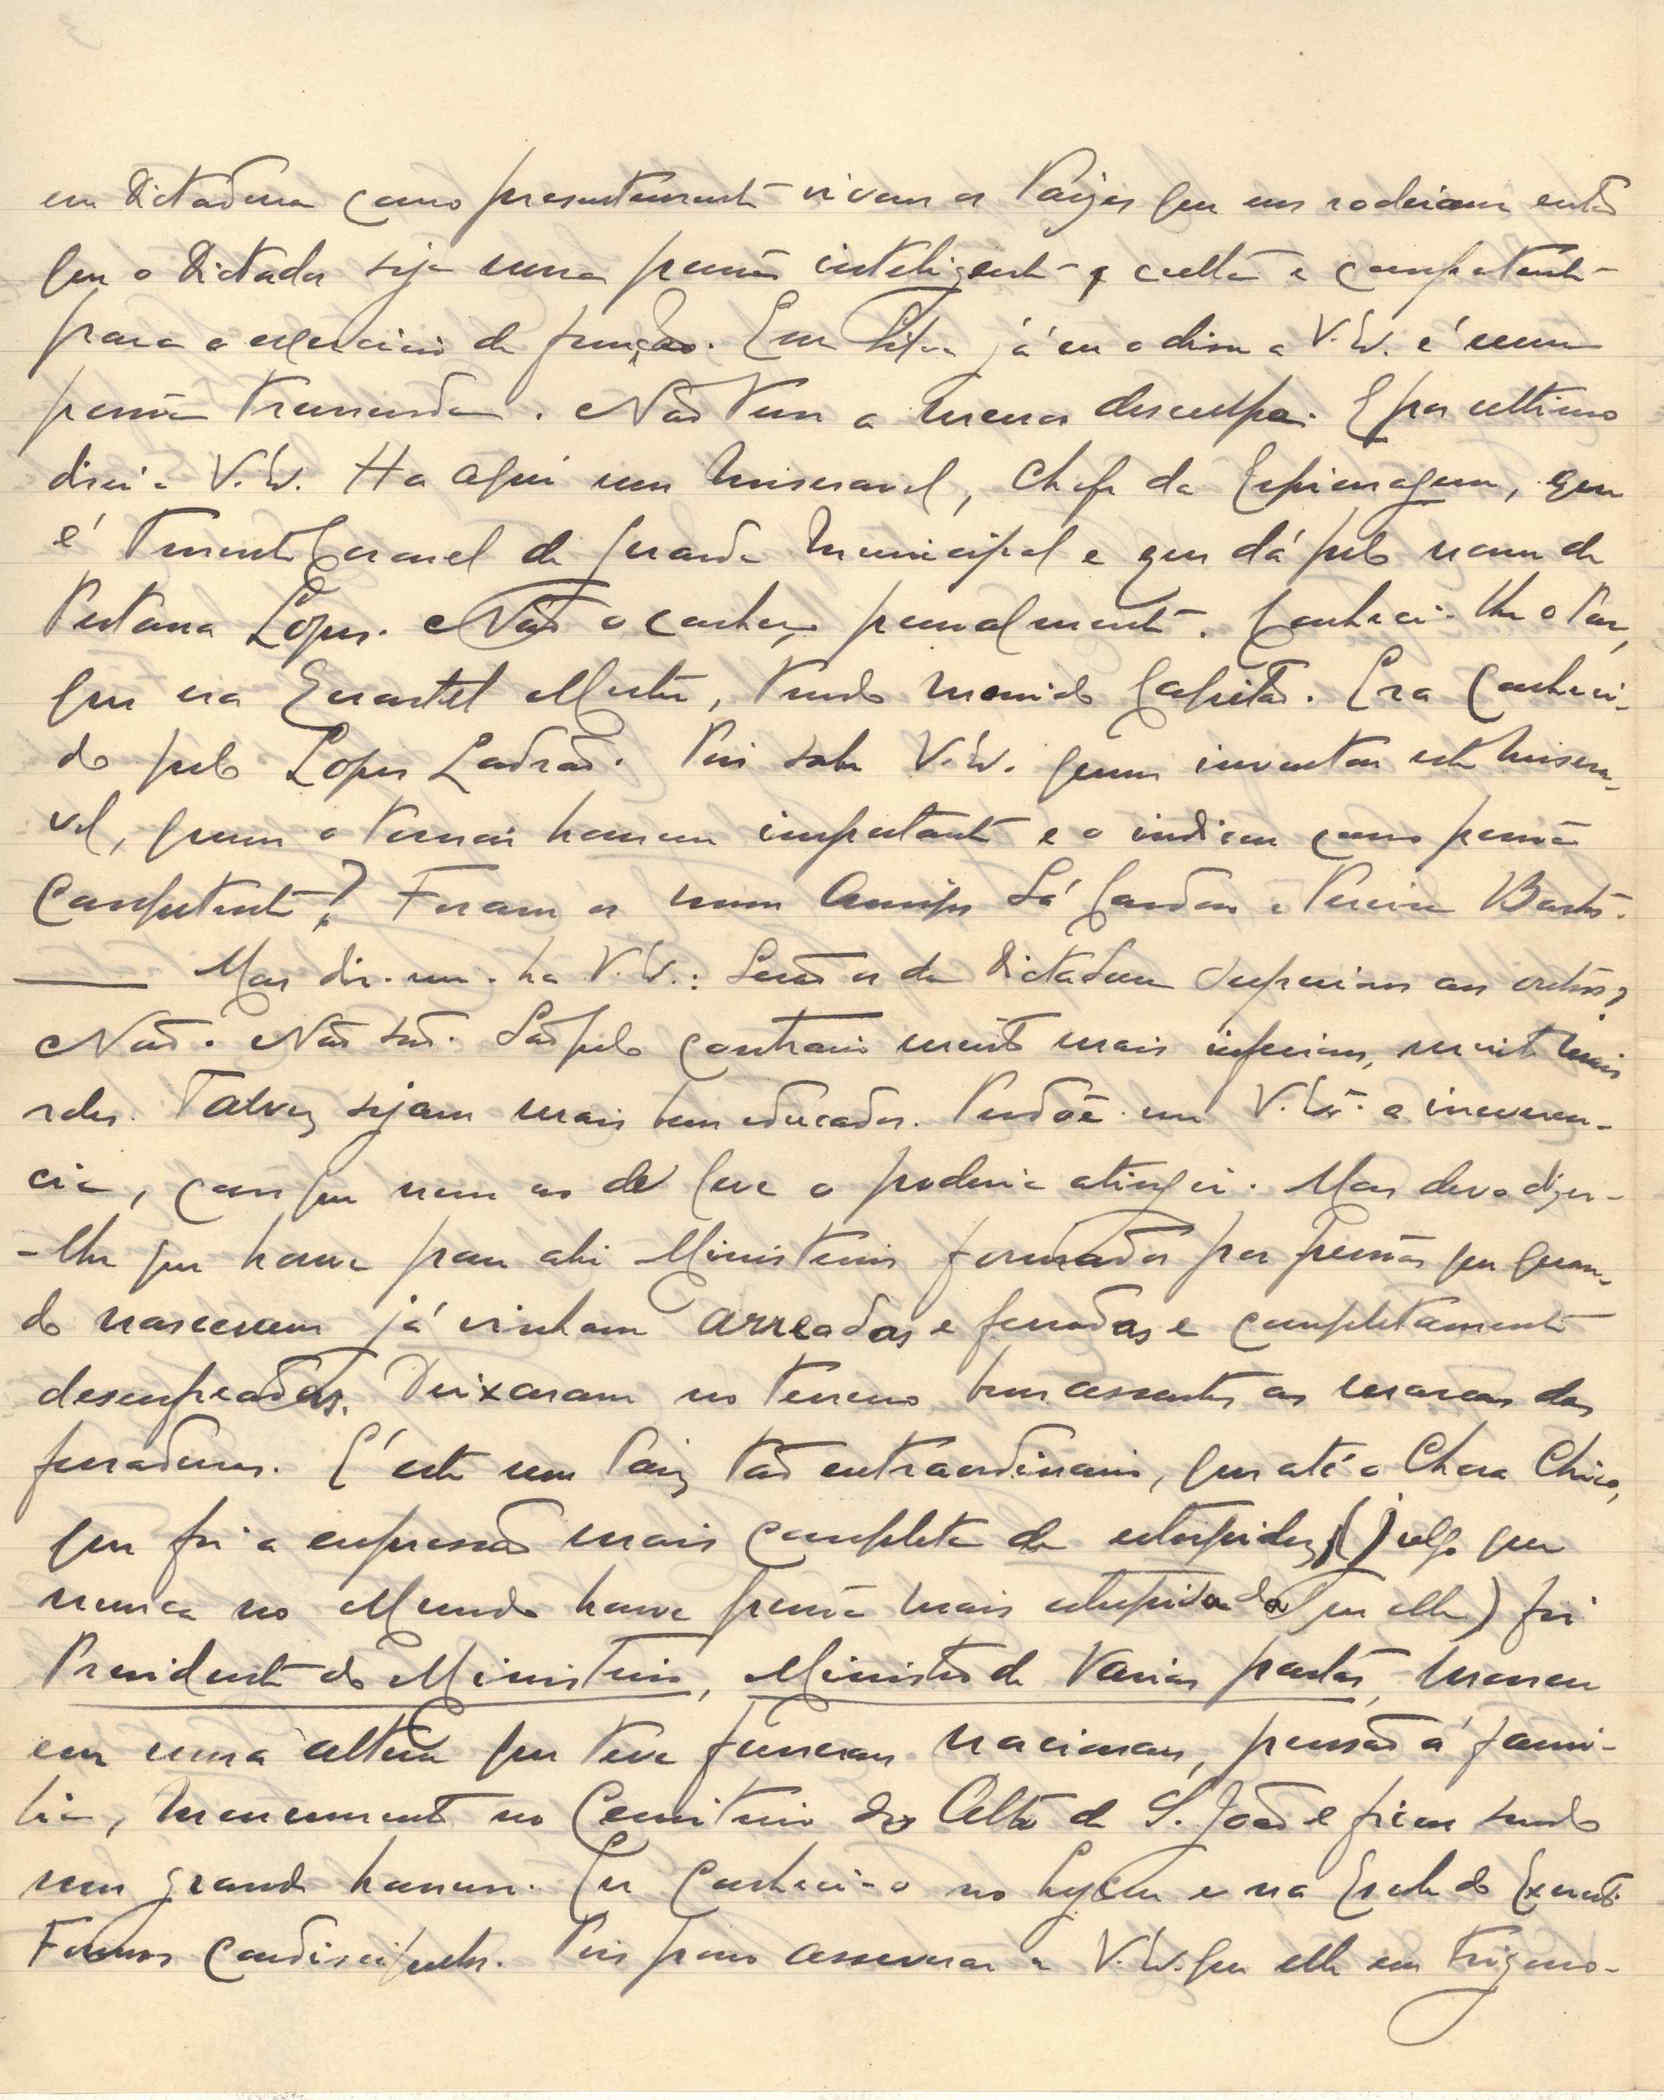 em Dictadura como presentemente vivem os Paizes que nos rodeiam então
que o Dictador seja uma pessoa inteligente, culta e competente
para o exercicio da função. Em já eu o disse a V. Ex. é uma
pessoa tremenda. Não tem a menor desculpa. E por ultimo
direi a V. Ex. Ha aqui um miseravel, chefe da Espionagem, que
é Tenente Coronel da Guarda Municipal e que dá pelo nome de
Pestana Lopes. Não o conheço pessoalmente. Conheci-lhe o Pae,
que era Quartel Mestre, tendo morrido Capitão. Era conheci-
do pelo Lopes Ladrão. Pois sabe V. Ex. quem inventou este misera-
vel, quem o tornou homem importante e o indicou como pessoa
competente? Foram os meus amigos Sá Cardoso e Pereira Bastos.
Mas dir-me-ha V. Ex.: Serão os da Dictadura superiores aos outros?
Não. Não são. São pelo contrario muito mais inferiores, muito mais
reles. Talvez sejam mais bem educados. Perdôe-me V. Ex.ª a irreveren-
cia, com que nem ao de leve o poderia atingir. Mas devo dizer-
-lhe que houve para ahi Ministerios formados por pessoas que quan-
do nasceram já vinham arreadas e ferradas e completamente
desempeadas. Deixaram no terreno bem assentes as marcas das
ferraduras. É este um Paiz tão extraordinario, que até o Chora Chico,
que foi a expressão mais completa da estupidez, (julgo que
nunca no Mundo houve pessoa mais estupida do que elle) foi
Presidente do Ministerio, Ministro de varias pastas, morreu
em uma altura que teve funeraes nacionaes, pensão á fami-
lia, monumento no Cemiterio do Alto de S. João e ficou sendo
um grande homem. Eu conheci-o no Lyceu e na Escola do Exercito
Fomos condiscipulos. Pois posso asseverar a V. Ex. que elle em Trigono-